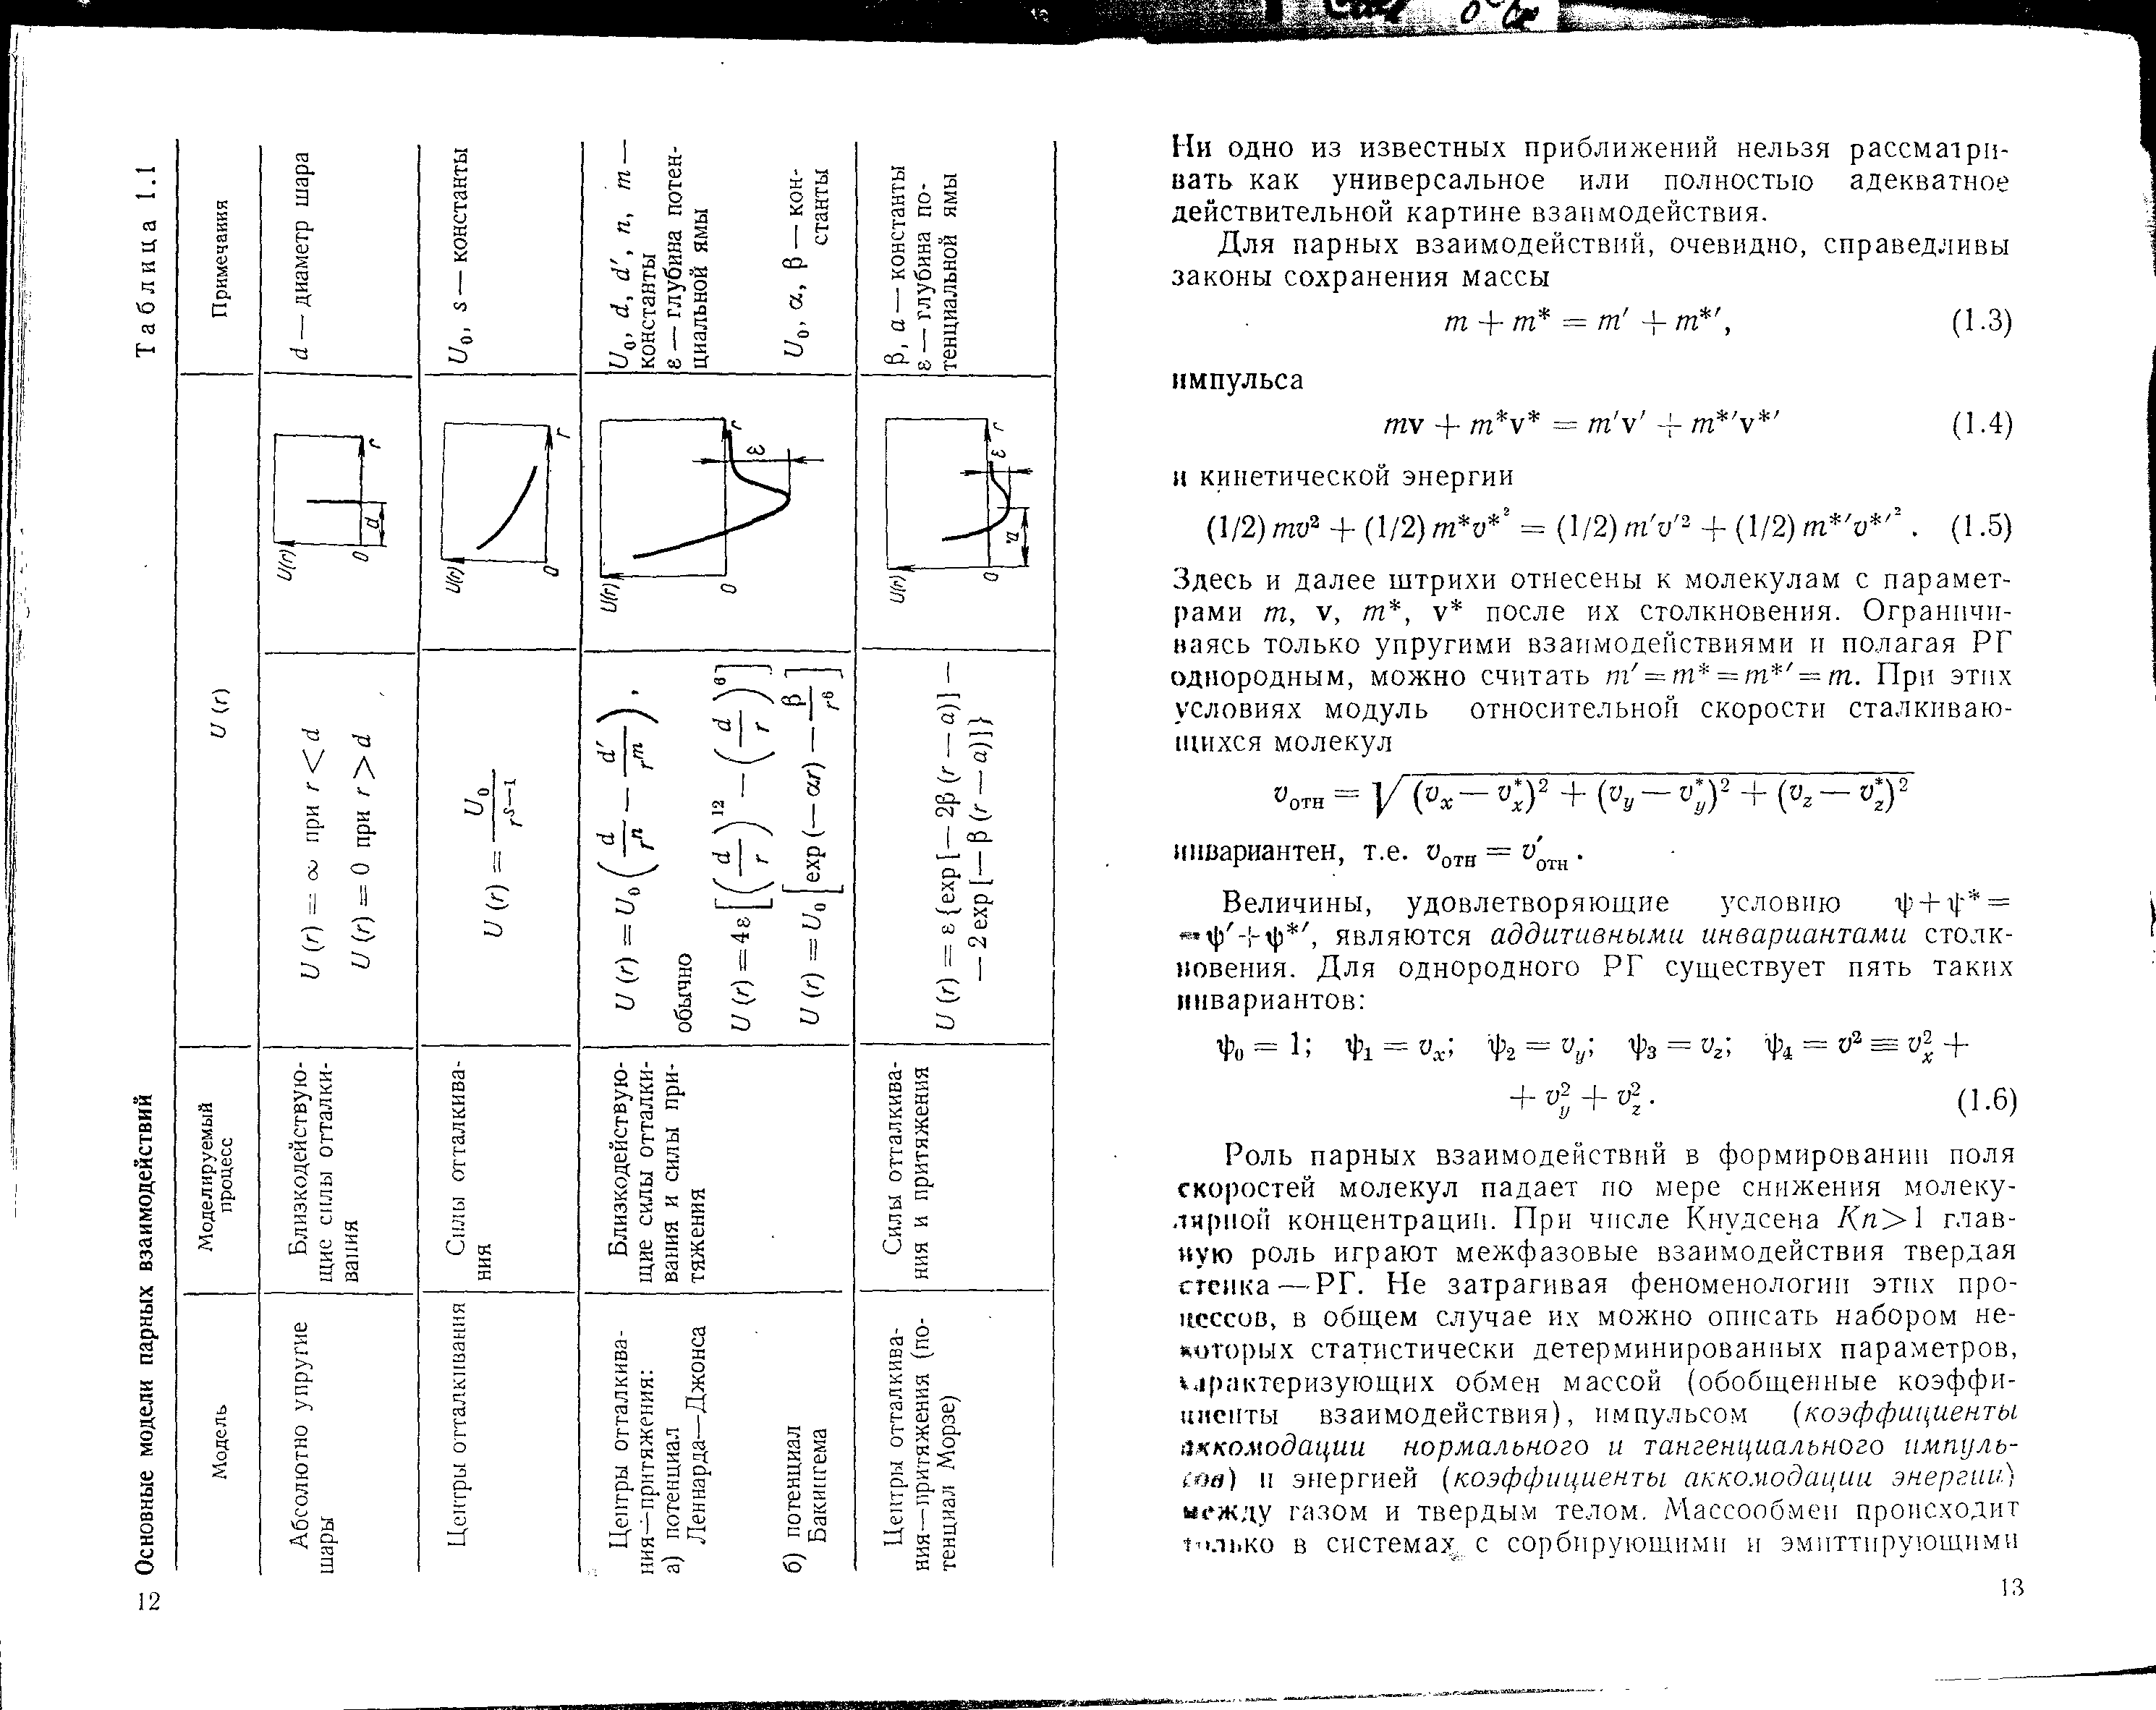 Таблица 1.1
Основные модели парных взаимодействий
Модель
Моделируемый
процесс
U (r)
Примечания
Абсолютно упругие
шары
Близкодействую-
щие силы отталки-
вания
U (r) = ∞ при r < d
U (r) = 0 при r > d
U(r)
0
d
r
d — диаметр шара
Центры отталкивания
Силы отталкива-
ния
U (r) = U₀ / r^(s—1)
U(r)
0
r
U₀, s — константы
Центры отталкива-
ния—притяжения:
а) потенциал
Леннарда—Джонса
б) потенциал
Бакингема
Близкодействую-
щие силы отталки-
вания и силы при-
тяжения
U (r) = U₀ (d/rⁿ — d′/rᵐ),
обычно
U (r) = 4ε [(d/r)¹² — (d/r)⁶]
U (r) = U₀ [exp (— αr) — β/r⁶]
U(r)
0
ε
r
U₀, d, d′, n, m —
константы
ε — глубина потен-
циальной ямы
U₀, α, β — кон-
станты
Центры отталкива-
ния—притяжения (по-
тенциал Морзе)
Силы отталкива-
ния и притяжения
U (r) = ε {exp [— 2β (r — a)] —
— 2 exp [— β (r — a)]}
U(r)
0
a
ε
r
β, a — константы
ε — глубина по-
тенциальной ямы
12
Ни одно из известных приближений нельзя рассматри-
вать как универсальное или полностью адекватное
действительной картине взаимодействия.
Для парных взаимодействий, очевидно, справедливы
законы сохранения массы
m + m* = m′ + m*′, (1.3)
импульса
mv + m*v* = m′v′ + m*′v*′ (1.4)
и кинетической энергии
(1/2) mv² + (1/2) m*v*² = (1/2) m′v′² + (1/2) m*′v*′². (1.5)
Здесь и далее штрихи отнесены к молекулам с парамет-
рами m, v, m*, v* после их столкновения. Ограничи-
ваясь только упругими взаимодействиями и полагая РГ
однородным, можно считать m′ = m* = m*′ = m. При этих
условиях модуль относительной скорости сталкиваю-
щихся молекул
v_отн = √((v_x — v*_x)² + (v_y — v*_y)² + (v_z — v*_z)²)
инвариантен, т.е. v_отн = v′_отн.
Величины, удовлетворяющие условию ψ + ψ* =
= ψ′ + ψ*′, являются аддитивными инвариантами столк-
новения. Для однородного РГ существует пять таких
инвариантов:
ψ₀ = 1; ψ₁ = v_x; ψ₂ = v_y; ψ₃ = v_z; ψ₄ = v² ≡ v²_x +
+ v²_y + v²_z. (1.6)
Роль парных взаимодействий в формировании поля
скоростей молекул падает по мере снижения молеку-
лярной концентрации. При числе Кнудсена Kn>1 глав-
ную роль играют межфазовые взаимодействия твердая
стенка — РГ. Не затрагивая феноменологии этих про-
цессов, в общем случае их можно описать набором не-
которых статистически детерминированных параметров,
характеризующих обмен массой (обобщенные коэффи-
циенты взаимодействия), импульсом (коэффициенты
аккомодации нормального и тангенциального импуль-
сов) и энергией (коэффициенты аккомодации энергии)
между газом и твердым телом. Массообмен происходит
только в системах с сорбирующими и эмиттирующими
13